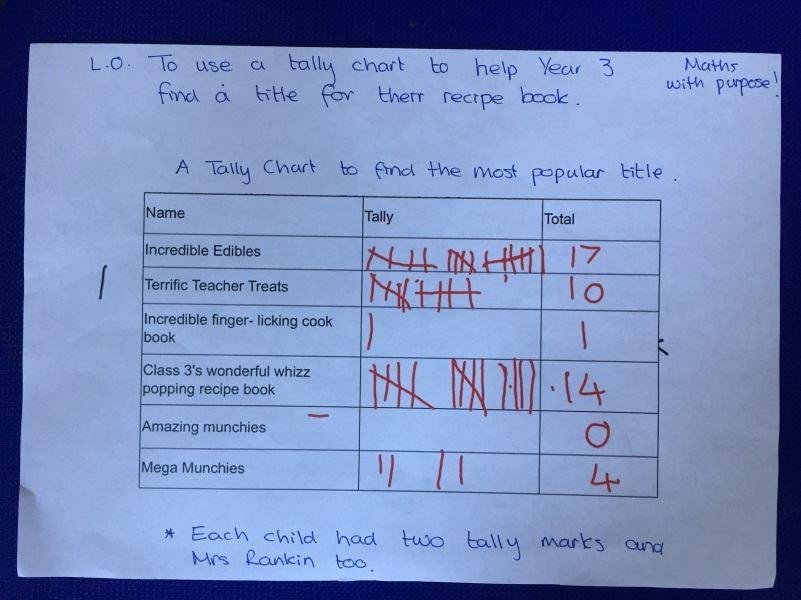 L.O. To use a tally chart to help Year 3
find a title for their recipe book.
Maths
with purpose!
A Tally Chart to find the most popular title.
Name Tally Total
Incredible Edibles 17
Terrific Teacher Treats 10
Incredible finger- licking cook
book 1
Class 3's wonderful whizz
popping recipe book 14
Amazing munchies 0
Mega Munchies 4
* Each child had two tally marks and
Mrs Rankin too.